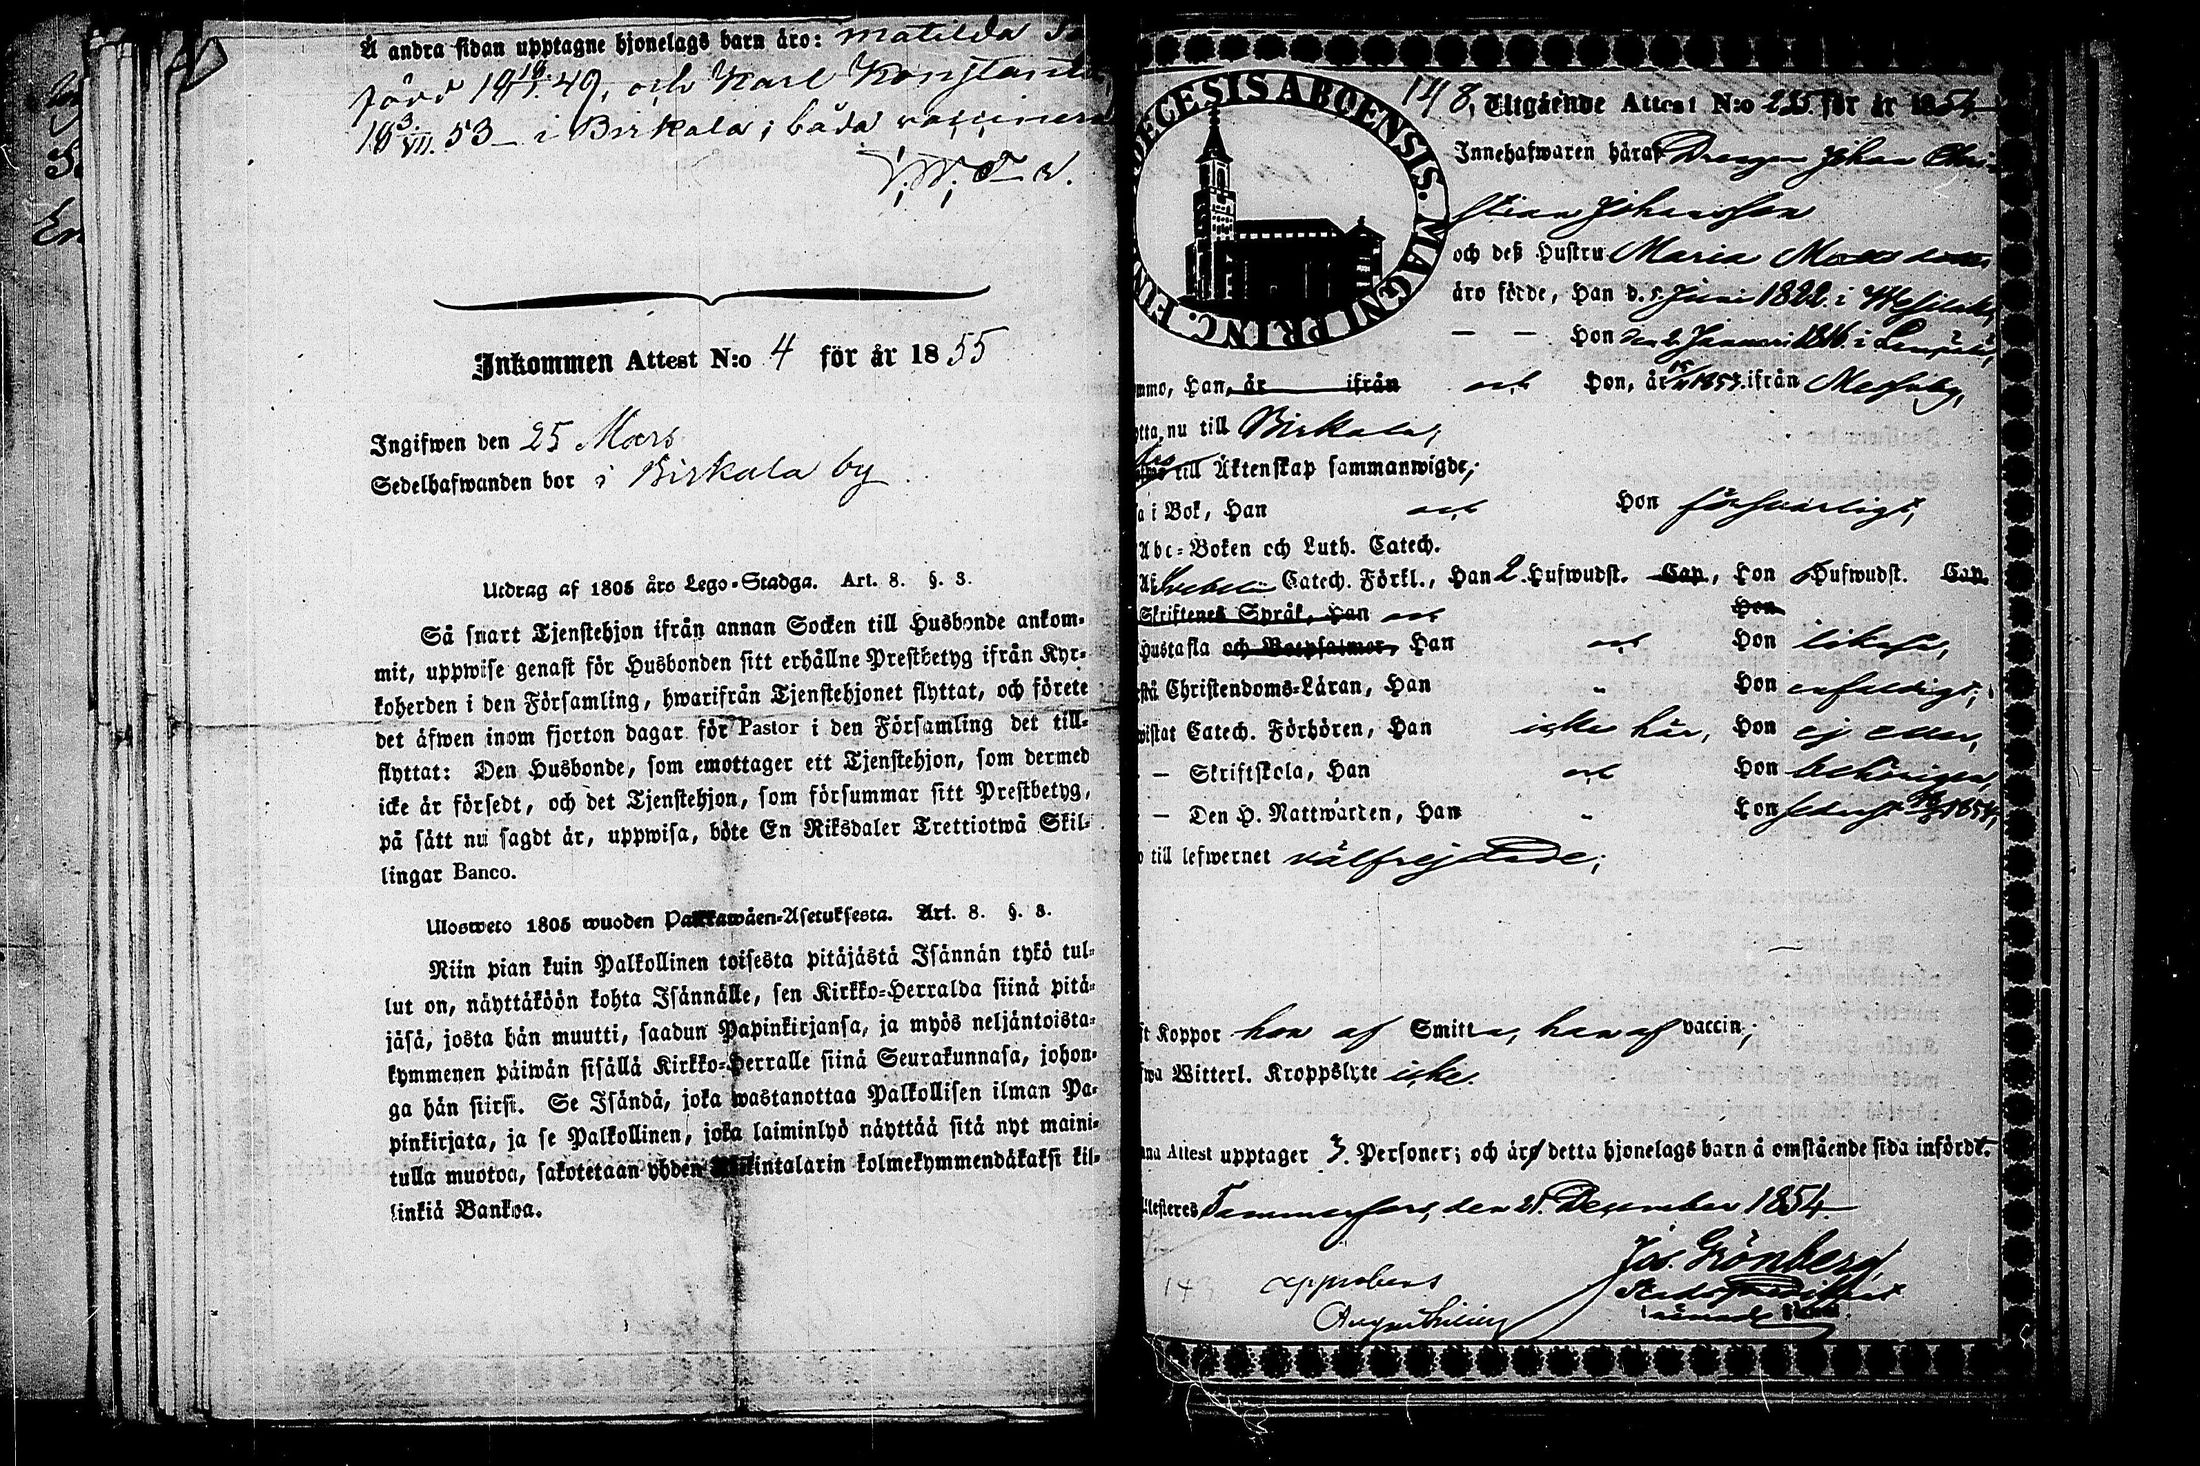 Å andra sidan upptagne hjonelags barn äro: Matilda
född 18 19/1. 49, och Karl Konstantin
18 3/VII. 53 – i Birkala; båda vaccinera
Inkommen Attest N:o 4 för år 1855
Ingifwen den 25 Mars
Sedelhafwanden bor i Birkala by
Utdrag af 1805 års Lego-Stadga. Art. 8. §. 3.
Så snart Tjenstehjon ifrån annan Socken till Husbonde ankom-
mit, uppwise genast för Husbonden sitt erhållne Prestbetyg ifrån Kyr-
koherden i den Församling, hwarifrån Tjenstehjonet flyttat, och förete
det äfwen inom fjorton dagar för Pastor i den Församling det till-
flyttat: Den Husbonde, som emottager ett Tjenstehjon, som dermed
icke är försedt, och det Tjenstehjon, som försummar sitt Prestbetyg,
på sätt nu sagdt är, uppwisa, böte En Riksdaler Trettiotwå Skil-
lingar Banco.
Ulosweto 1805 wuoden Palkkawäen-Asetuksesta. Art. 8. §. 3.
Niin pian kuin Palkollinen toisesta pitäjästä Isännän tykö tul-
lut on, näyttäköön kohta Isännälle, sen Kirkko-Herralda siinä pitä-
jäsä, josta hän muutti, saadun Papinkirjansa, ja myös neljäntoista-
kymmenen päiwän sisällä Kirkko-Herralle siinä Seurakunnasa, johon-
ga hän siirsi. Se Isändä, joka wastanottaa Palkollisen ilman Pa-
pinkirjata, ja se Palkollinen, joka laiminlyö näyttää sitä nyt maini-
tulla muotoa, sakotetaan yhden Riikintalarin kolmekymmendäkaksi kil-
linkiä Bankoa.
DECESIS ABOENSIS. MAGNI PRINC. FIN
148. Utgående Attest N:o 215 för år 1854
Innehafwaren häraf Drengen Johan Chri-
stian Johansson
och deß Hustru Maria Matsdotter
äro födde, Han d. 5 Juni 1822 i Wesilaks,
— — Hon den 2 Januari 1816 i Lempäälä,
mmo, Han, är ifrån och Hon, är 15/11 1853 ifrån Messuby,
nu till Birkala;
till Äktenskap sammanwigde;
a i Bok, Han och Hon försvarligt,
Abc-Boken och Luth. Catech.
Svebelii Catech. Förkl., Han 2. Hufwudst. Cap., Hon Hufwudst. Cap.
Skriftenes Språk, Han och Hon
Hustafla och Botpsalmer, Han och Hon likaså,
Christendoms-Läran, Han " Hon enfaldigt;
wistat Catech. Förhören, Han icke här, Hon ej eller,
— Skriftskola, Han och Hon behörigen,
— Den H. Nattwarden, Han " Hon sednast 1854,
till lefwernet välfrejdade;
Koppor hon af Smitta, han af vaccin;
Witterl. Kroppslyte icke.
na Attest upptager 3. Personer; och äro detta hjonelags barn å omstående sida införde.
Attesteres Tammerfors, den 21. December 1854
Jos. Grönberg
approberas